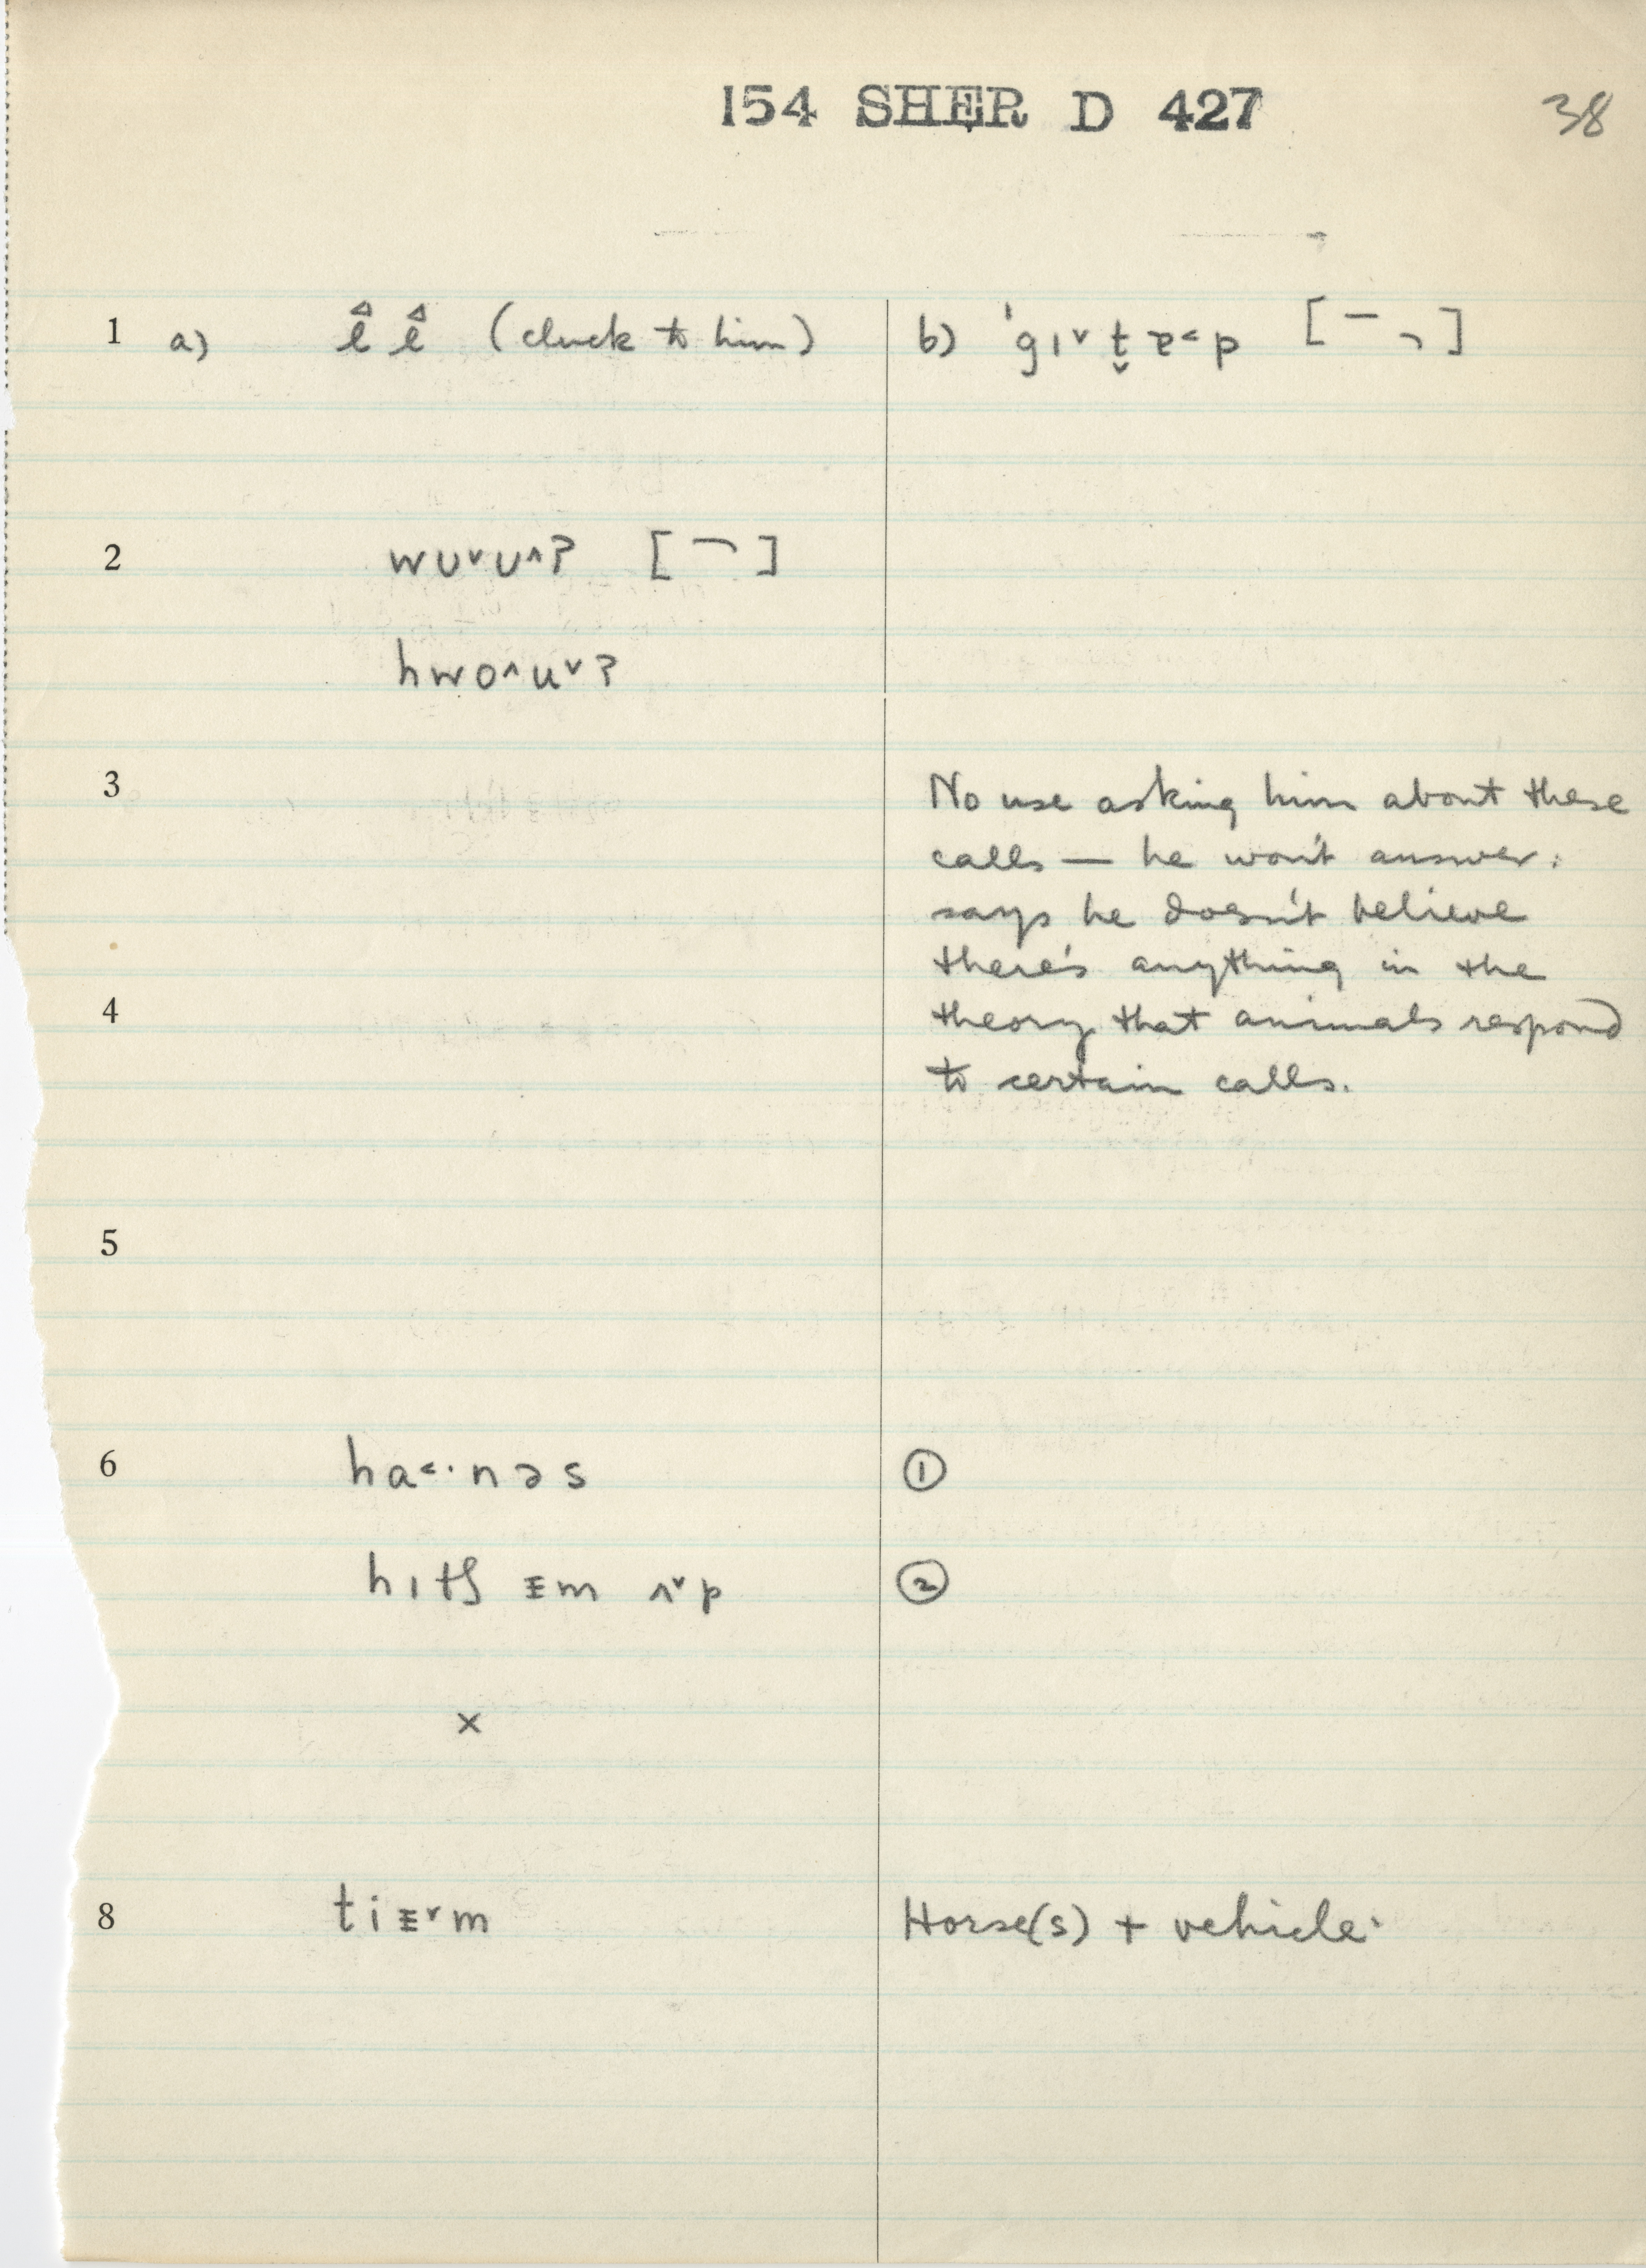 154 SHER D 427 38
1 a) l̂ l̂ (cluck to him) b) ˈgɪ˅ t̬ ɐ˂p [¯ ¬]
2 wʊ˅ʊ˄? [¬]
hwo˄u˅?
3 No use asking him about these
calls — he won't answer:
says he doesn't believe
there's anything in the
4 theory that animals respond
to certain calls.
5
6 ha˂·nəs ①
hɪtʃ ɪm ʌ˅p ②
×
8 ti m Horse(s) + vehicle.